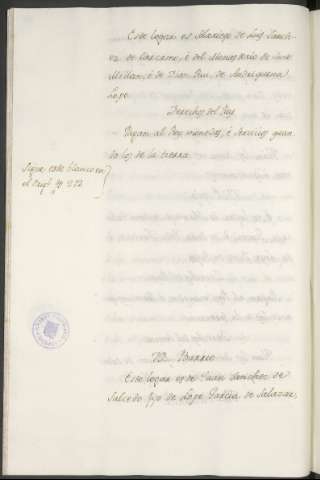 Este logar es Abadengo de Luys Sanch
ez de Carcamo, é del Monesterio de Sant
Millan, é de Diag. Rui. de
Lope.
Derechos del Rey
Pagan al Rey monedas, é servicios quan
do los de la tierra.
Sigue este blanco en
el orig.l fº 212
Barrio
Este logar es de Juan Sanchez de
Salcedo fijo de Lope Garcia de Salazar,